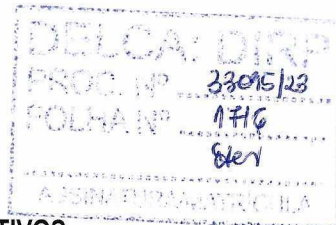 DELCA: DIRP
PROC. Nº 33095/23
FOLHA Nº 1716
ASSINATURA/MATRÍCULA
TIVOS